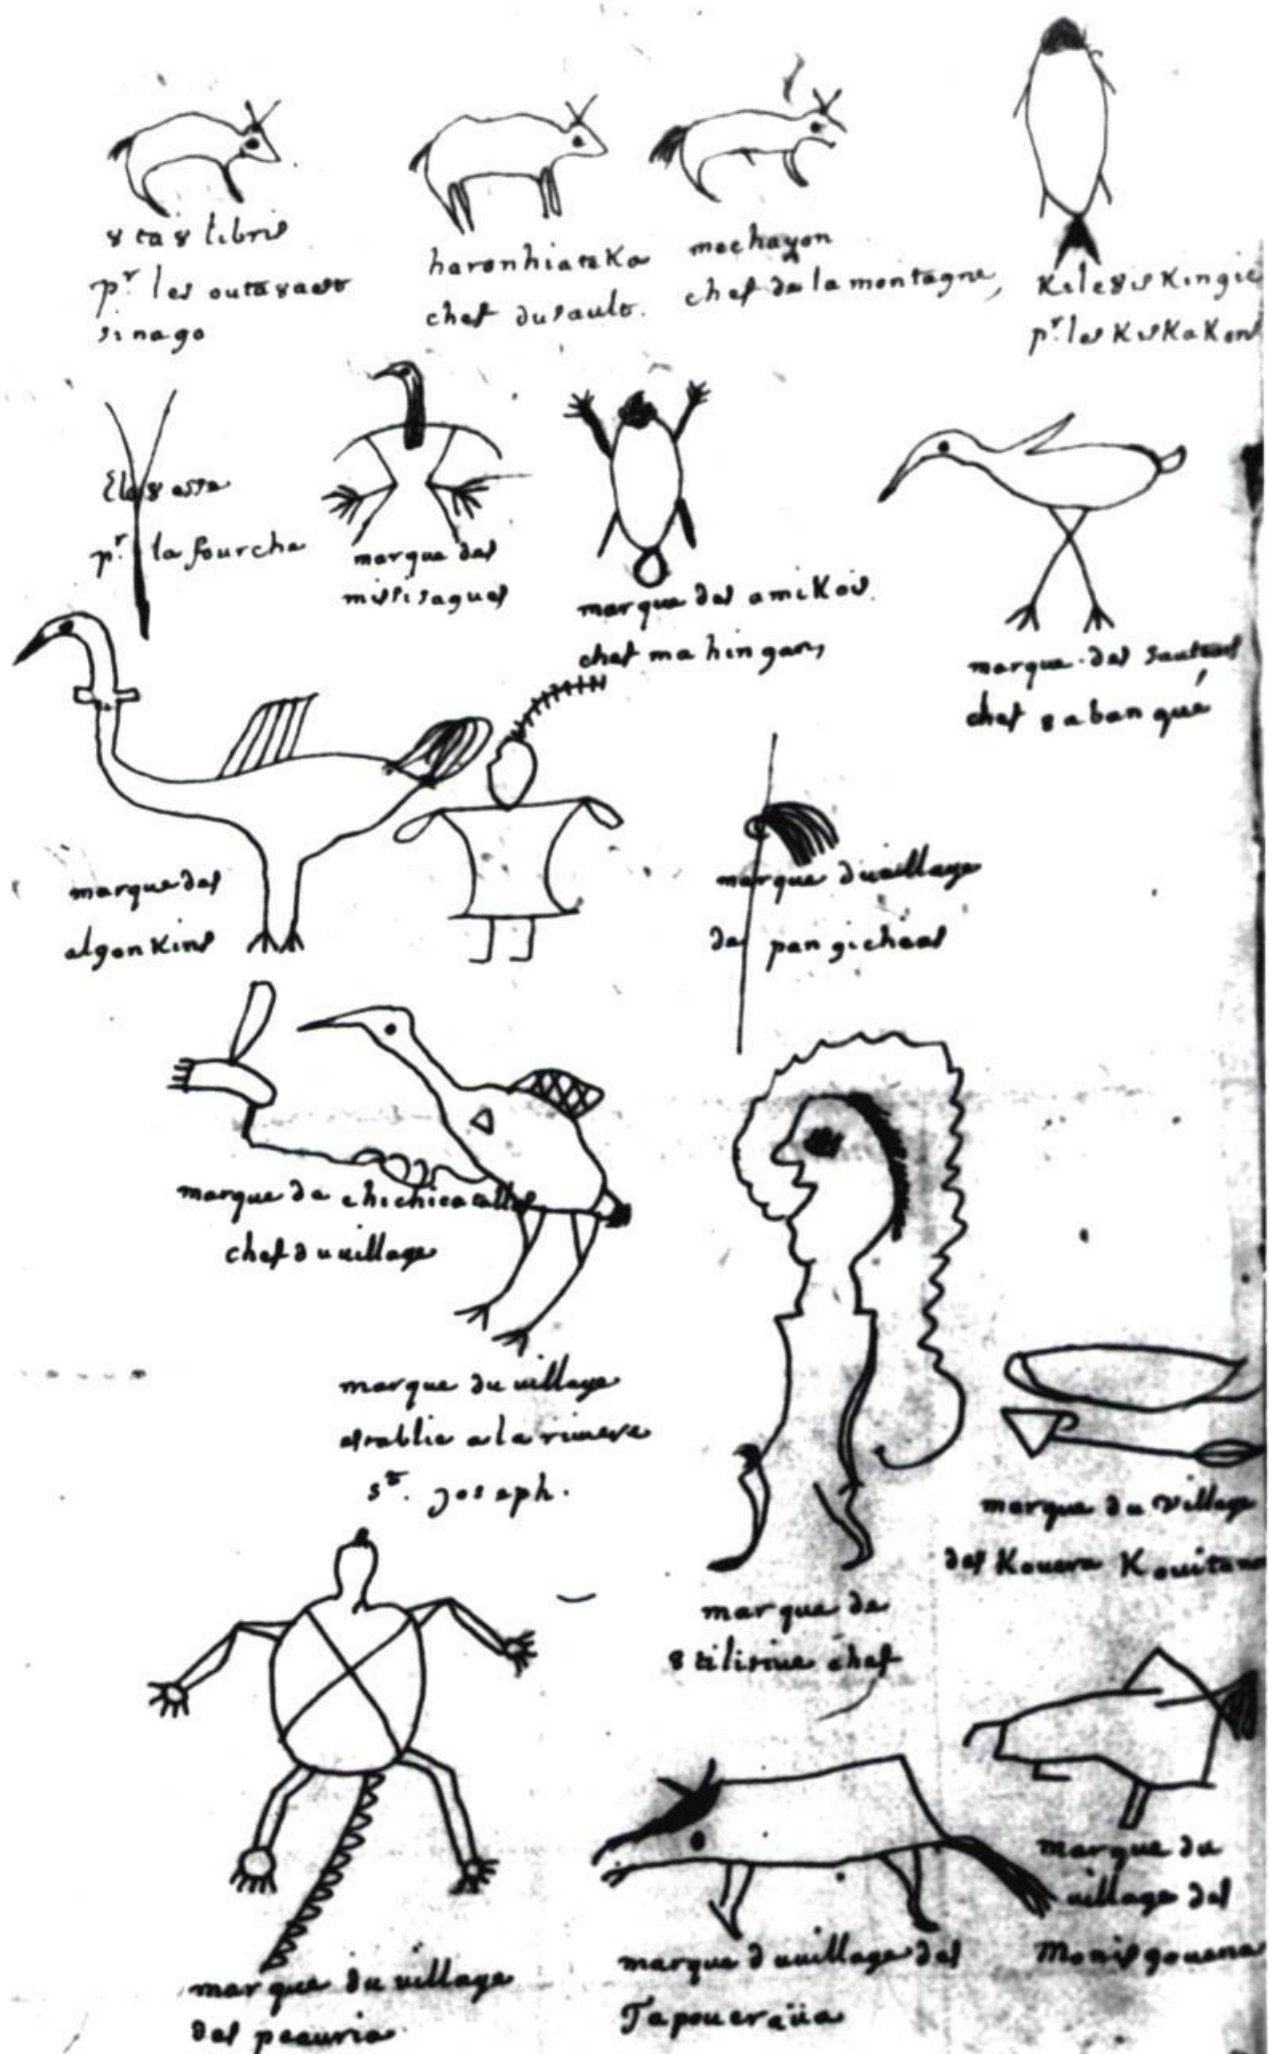 8ta8libris
pr les outa8aes
sinago
haronhiateka
chef du sault.
mechayon
chef de la montagne,
Kile8iskingie
pr. les KisKaKons
Ela8asse
pr. la fourche
marque des
missisagues
marque des amiKois
chef mahingan,
marque des sauteurs
chef 8abangué
marque des
algonKins
marque du village
des pangicheas
marque de chichicatallo
chef du village
marque du village
establie a la riviere
st. joseph.
marque de
8tilirine chef
marque du village
des Kouera Kouitanon
marque du village
des peauria
marque du village des
Tapoueraüa
marque du
village des
Monisgouena